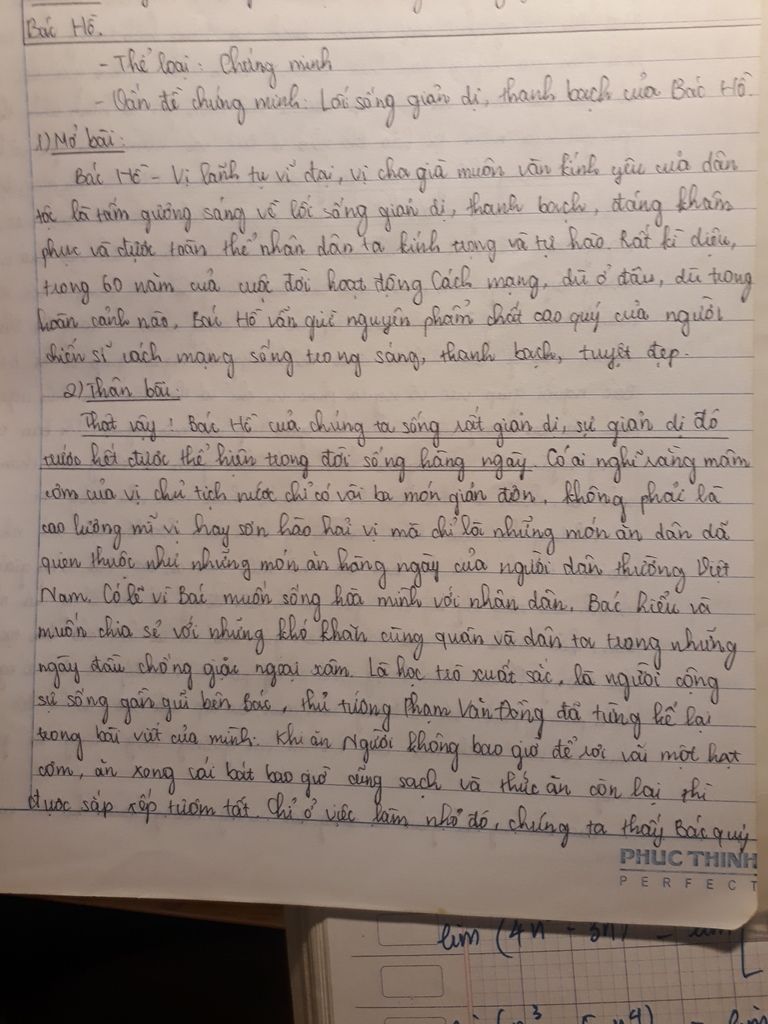 Bác Hồ.
- Thể loại: Chứng minh
- Vấn đề chứng minh: Lối sống giản dị, thanh bạch của Bác Hồ.
1) Mở bài:
Bác Hồ - Vị lãnh tụ vĩ đại, vị cha già muôn vàn kính yêu của dân
tộc là tấm gương sáng về lối sống giản dị, thanh bạch, đáng khâm
phục và được toàn thể nhân dân ta kính trọng và tự hào. Rất kì diệu,
trong 60 năm của cuộc đời hoạt động Cách mạng, dù ở đâu, dù trong
hoàn cảnh nào, Bác Hồ vẫn giữ nguyên phẩm chất cao quý của người
chiến sĩ cách mạng sống trong sáng, thanh bạch, tuyệt đẹp.
2) Thân bài:
Thật vậy! Bác Hồ của chúng ta sống rất giản dị, sự giản dị đó
trước hết được thể hiện trong đời sống hằng ngày. Có ai nghĩ rằng mâm
cơm của vị chủ tịch nước chỉ có vài ba món giản đơn, không phải là
cao lương mĩ vị hay sơn hào hải vị mà chỉ là những món ăn dân dã
quen thuộc như những món ăn hàng ngày của người dân thường Việt
Nam. Có lẽ vì Bác muốn sống hòa mình với nhân dân. Bác hiểu và
muốn chia sẻ với những khó khăn cùng quân và dân ta trong những
ngày đầu chống giặc ngoại xâm. Là học trò xuất sắc, là người cộng
sự sống gần gũi bên Bác, thủ tướng Phạm Văn Đồng đã từng kể lại
trong bài viết của mình: Khi ăn Người không bao giờ để rơi vãi một hạt
cơm, ăn xong cái bát bao giờ cũng sạch và thức ăn còn lại thì
được sắp xếp tươm tất. Chỉ ở việc làm nhỏ đó, chúng ta thấy Bác quý
PHUC THINH
PERFECT